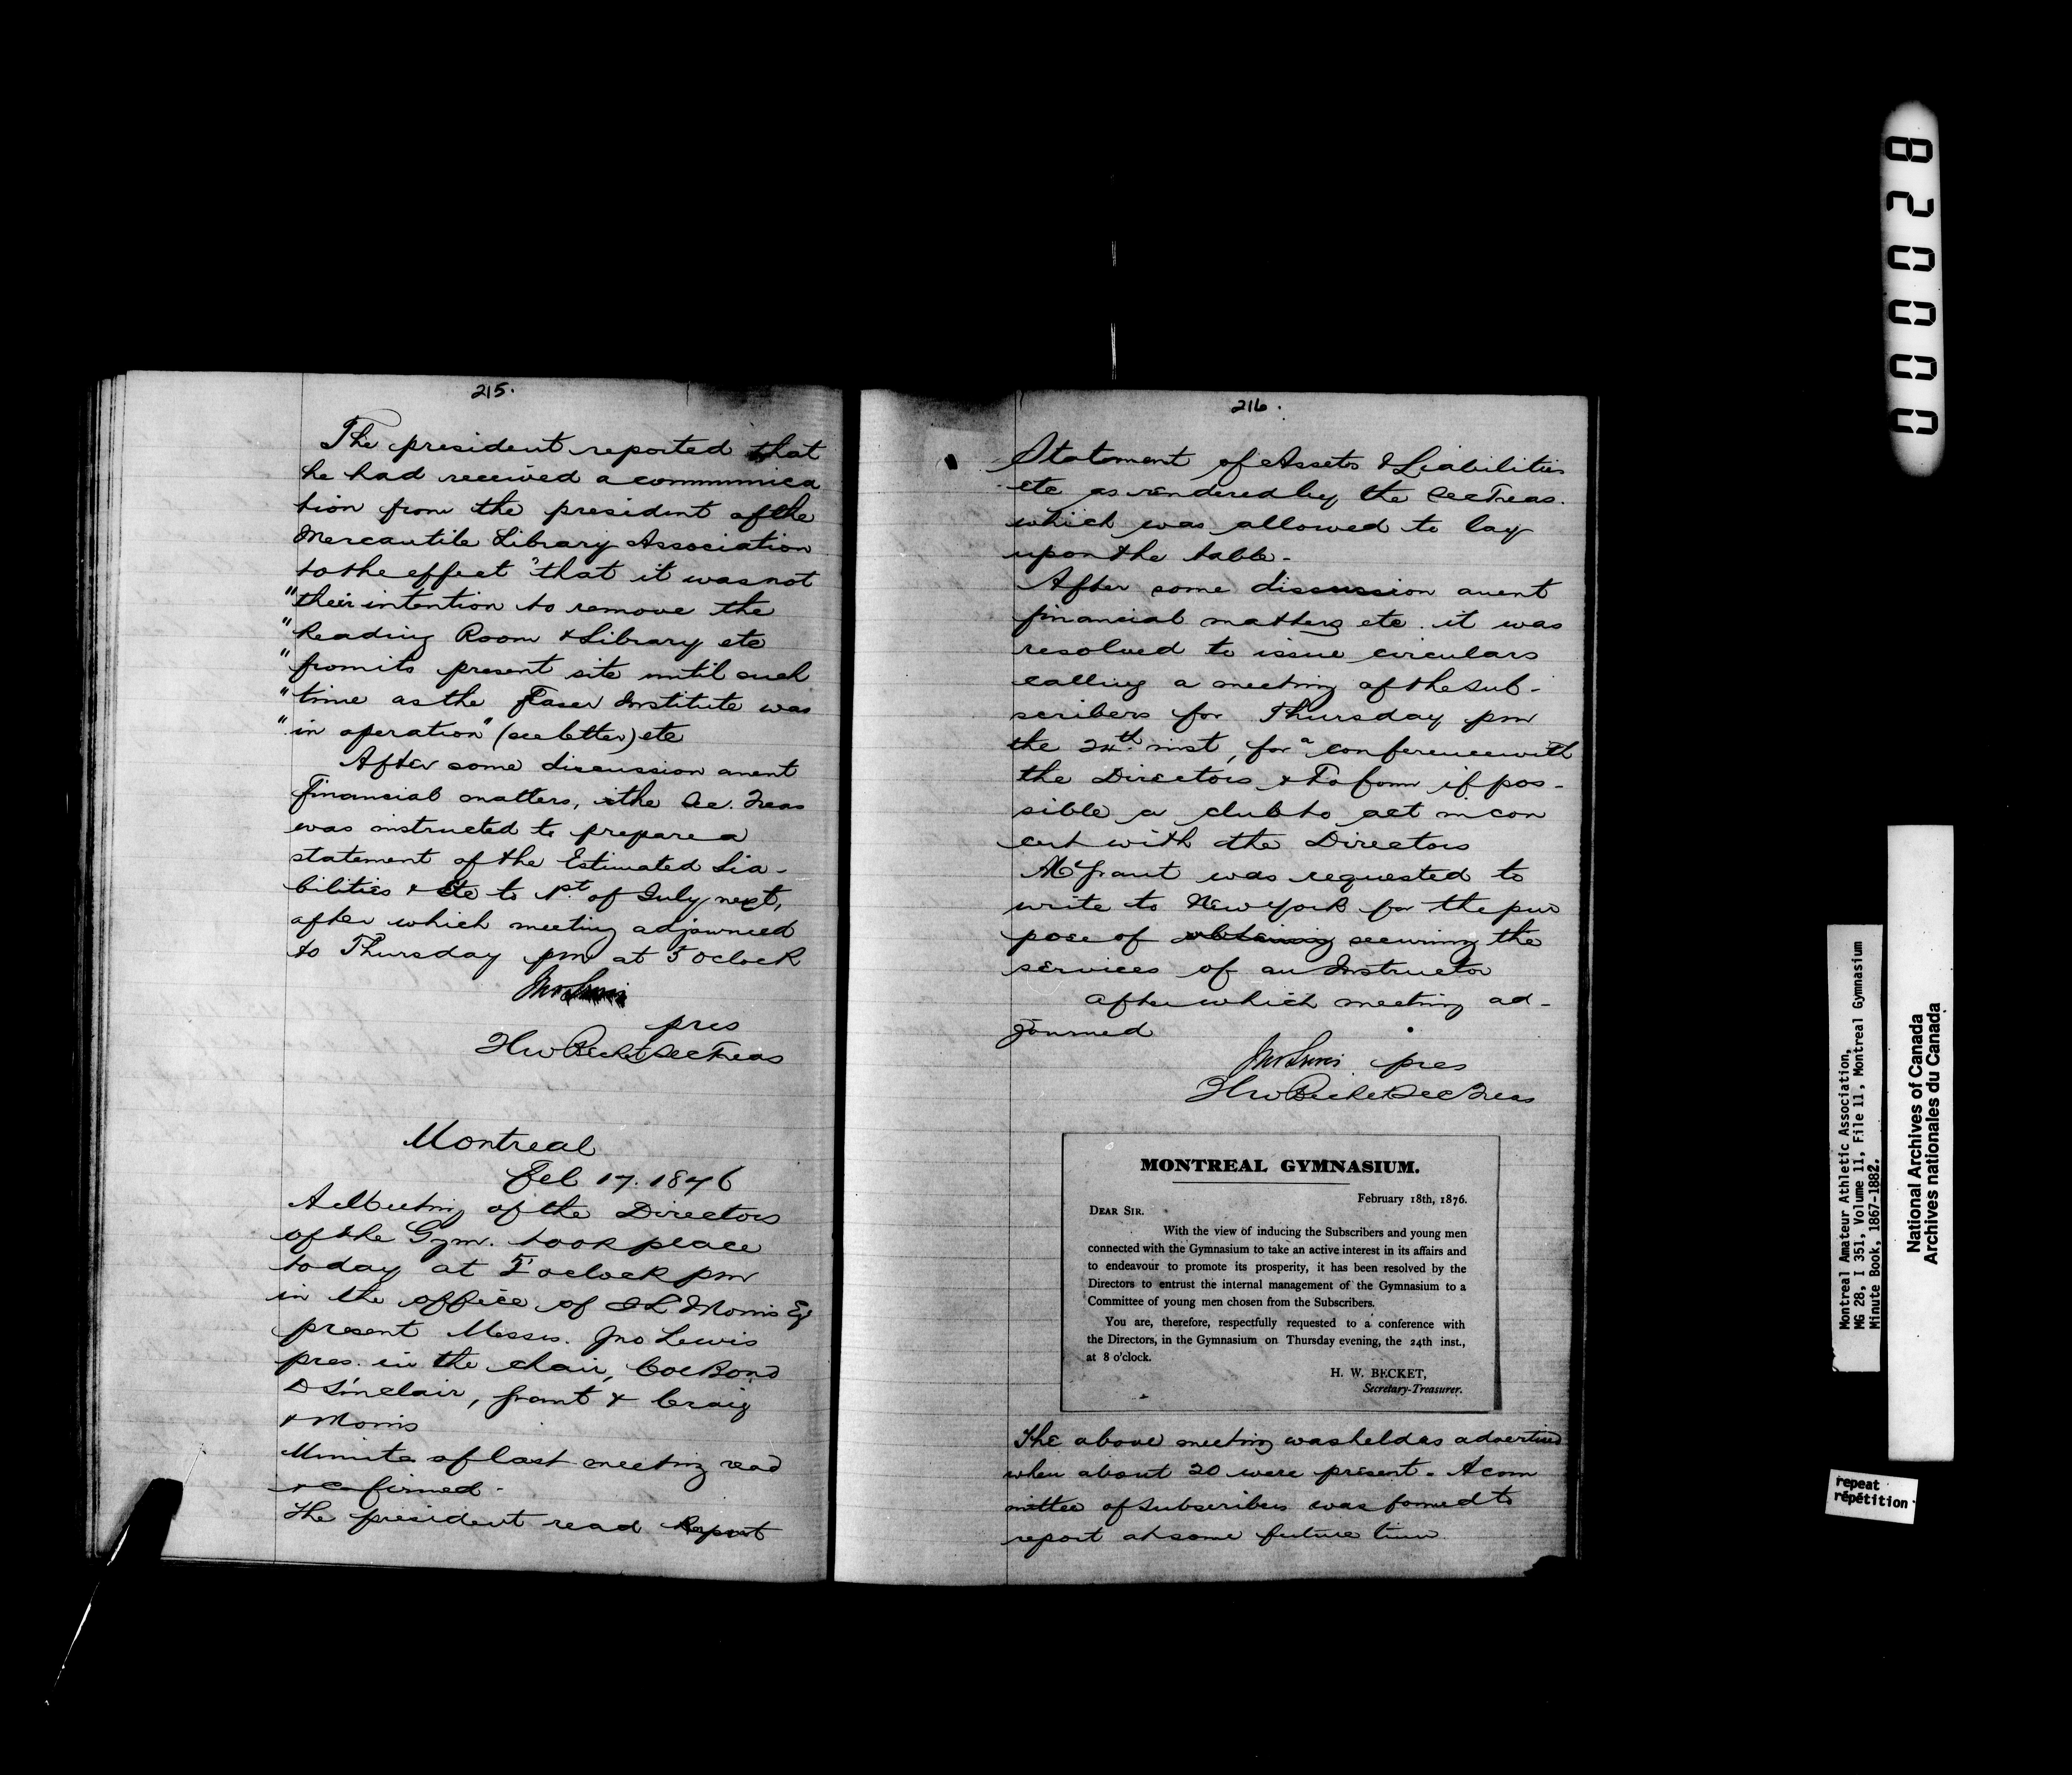 215.
The president reported that
he had received a communica
tion from the president of the
Mercantile Library Association
to the effect "that it was not
"their intention to remove the
"Reading Room & Library etc
"from its present site until such
"time as the Fraser Institute was
"in operation" (see letter) etc
After some discussion anent
Financial matters, the Sec. Treas
was instructed to prepare a
statement of the Estimated Lia-
bilities & Etc to 1st of July next,
after which meeting adjourned
to Thursday pm at 5 oclock
Jno Lewis
pres
HW Becket SecTreas
Montreal
Feb 17. 1876
A Meeting of the Directors
of the Gym. took place
today at 5 oclock pm
in the office of J L Morris Esq
present Messrs. Jno Lewis
pres. in the chair, Col Bond
D Sinclair, Grant & Craig
& Morris
Minutes of last meeting read
& cofirmed -
The president read Report
216.
Statement of Assets & Liabilities
etc as rendered by the SecTreas.
which was allowed to lay
upon the table -
After some discussion anent
financial matters etc. it was
resolved to issue circulars
calling a meeting of the sub-
scribers for Thursday pm
the 24th inst, for a conference with
the Directors & To form if pos-
sible a club to act in con
cert with the Directors
Mr Grant was requested to
write to New York for the pur
pose of obtaining securing the
services of an Instructor
After which meeting ad-
journed
Jno Lewis pres
HW Becket Sec Treas
MONTREAL GYMNASIUM.
February 18th, 1876.
DEAR SIR.
With the view of inducing the Subscribers and young men
connected with the Gymnasium to take an active interest in its affairs and
to endeavour to promote its prosperity, it has been resolved by the
Directors to entrust the internal management of the Gymnasium to a
Committee of young men chosen from the Subscribers.
You are, therefore, respectfully requested to a conference with
the Directors, in the Gymnasium on Thursday evening, the 24th inst.,
at 8 o'clock.
H. W. BECKET,
Secretary-Treasurer.
The above meeting was held as advertised
when about 20 were present. A com
mittee of subscribers was formed to
report at some future time
000028
Montreal Amateur Athletic Association,
MG 28, I 351, Volume 11, File 11, Montreal Gymnasium
Minute Book, 1867-1882.
National Archives of Canada
Archives nationales du Canada
repeat
répétition